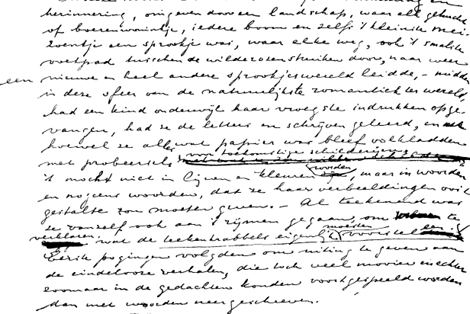 herinnering, omgeven door een landschap, waar elk gehucht
of boerenwoninkje, iedere boom en zelfs 't kleinste
een sprookje was, waar elke weg, ook 't smalste
voetpad tusschen de wilde rozenstruiken door, naar weer
een nieuwe en heel andere sprookjeswereld leidde, – midden
in deze sfeer van de natuurlijkste romantiek ter wereld
had een kind onderwijl haar vroegste indrukken opge
vangen, had ze de letters en schrijven geleerd, en
hoewel ze alle wat papier was bleef volkladden
met probeersels
't mocht niet in lijnen en kleuren worden, maar in woorden
en nogeens woorden, dat ze haar verbeeldingen ooit
gestalte zou moeten geven. – Al teekenend was
ze vanzelf ook aan 't rijmen gegaan, om te
verklaren, wat de teekenkrabbels eigenlijk moesten voorstellen.
Eerste pogingen volgden om uiting te geven aan
de eindelooze verhalen, die toch veel mooier en echter
eenmaal in de gedachten konden voortgespeeld worden
dan met woorden neergeschreven.